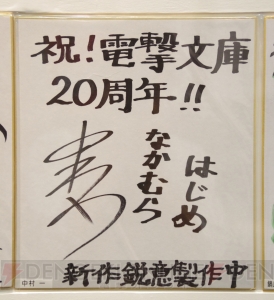 祝!電撃文庫
20周年!!
はじめ
なかむら
新作鋭意製作中
中村 一